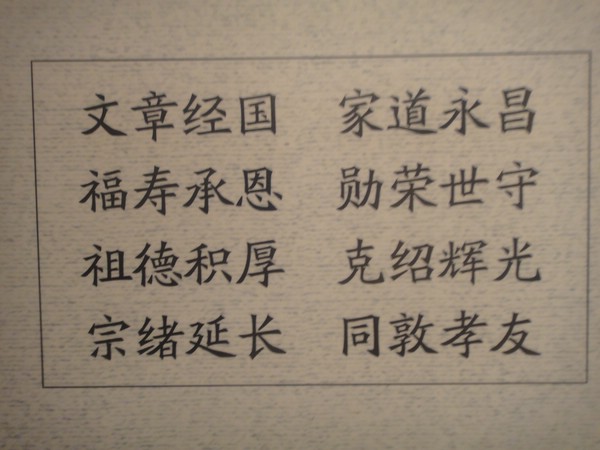 文章经国 家道永昌
福寿承恩 勋荣世守
祖德积厚 克绍辉光
宗绪延长 同敦孝友